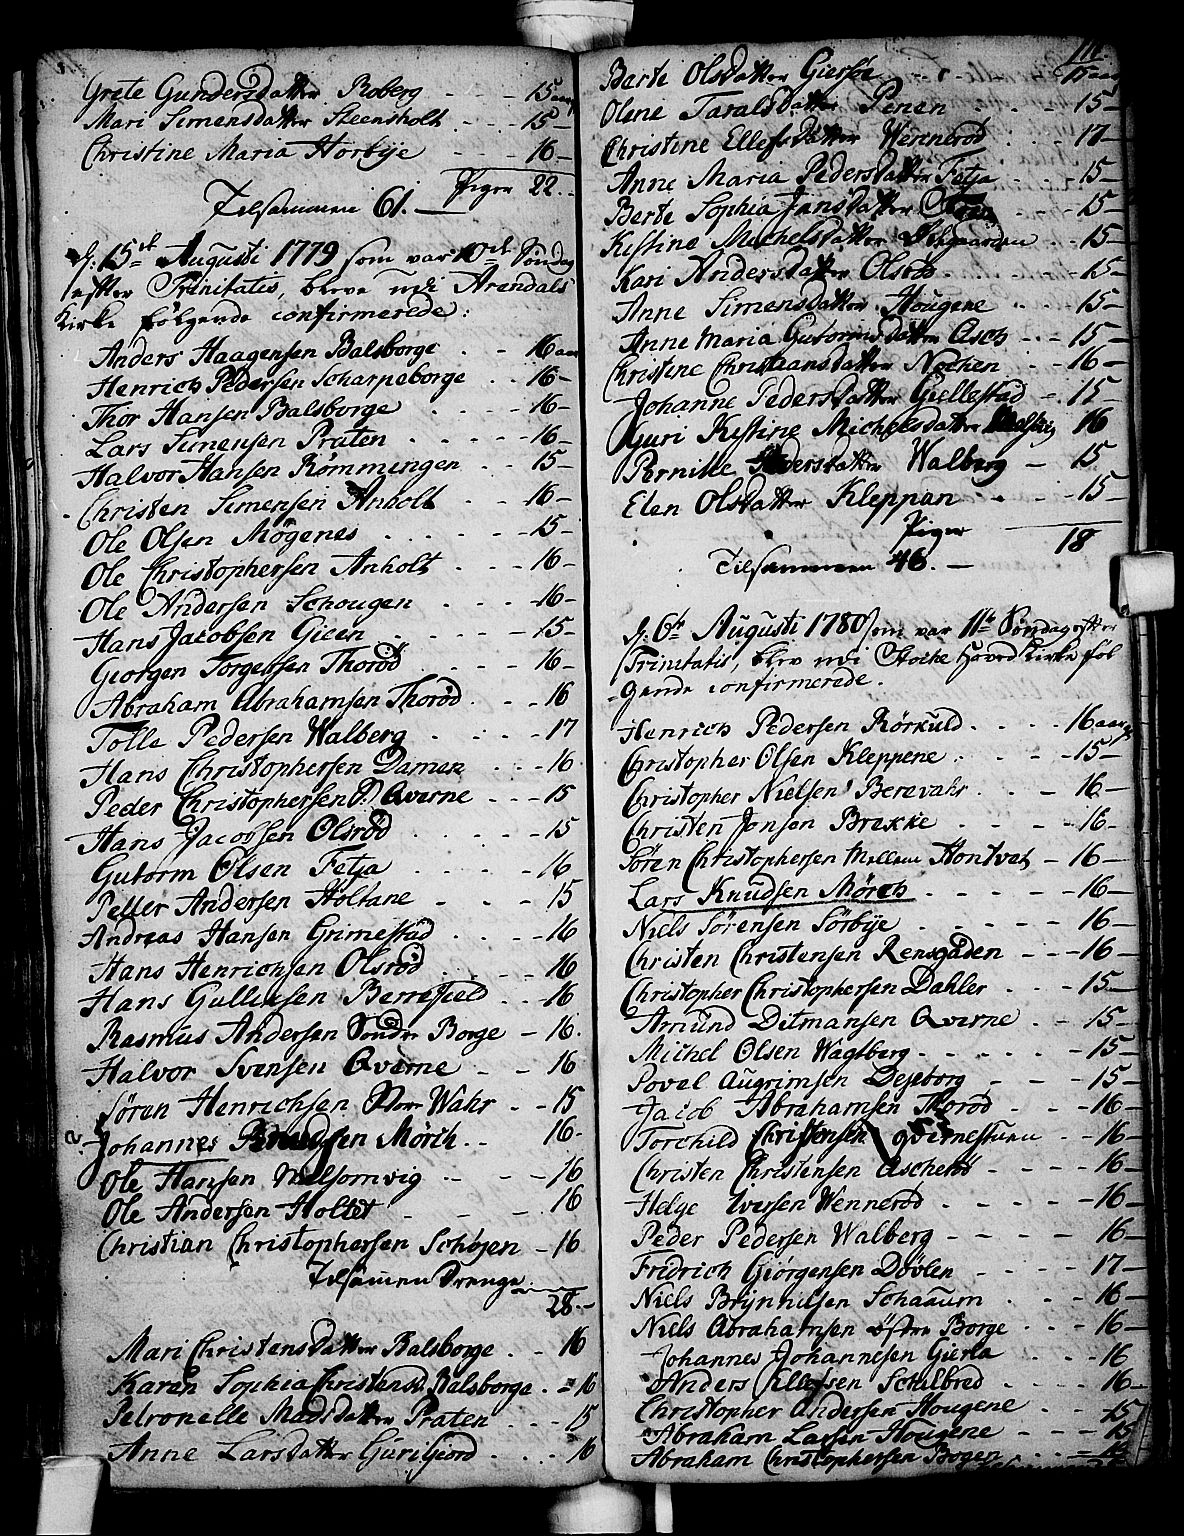 Grete Gundersdatter Roberg - - - 15 aar
Mari Simensdatter Steensholt - - - 15 -
Christine Maria Horbye - - - 16 -
Piger 22.
Tilsammen 61. -
d: 15de Augusti 1779 som var 10de Søndag
efter Trinitatis, bleve udi Arendals
Kirke følgende confirmerede:
Anders Haagensen Balsborge - - 16 aar
Henrich Pedersen Scharpeborge - - 16 -
Thor Hansen Balsborge - - - 16 -
Lars Simensen Praten - - - 16 -
Halvor Hansen Rømmingen - - 15 -
Christen Simensen Anholt - - 16 -
Ole Olsen Mögenes - - - 15 -
Ole Christophersen Anholt - - 16 -
Ole Andersen Schougen - - - 16 -
Hans Jacobsen Gieen - - - 15 -
Giorgen Torgersen Thoröd - - 16 -
Abraham Abrahamsen Thoröd - - - 16
Tolle Pedersen Walberg - - - 17
Hans Christophersen Damen - - 16
Peder Christophersen Qverne - - - 15
Hans Jacobsen Olsröd - - - 15
Gutorm Olsen Fetja - - - 16
Peller Andersen Holtane - - - 15
Andreas Hansen Grimestad - - - 16
Hans Henrichsen Olsröd - - - 16
Hans Gulliksen Berrefield - - - 16
Rasmus Andersen Søndre Borge - 16.
Halvor Svensen Qverne - - 16
Søren Henrichsen Wahr - - 15
Johannes Knudsen Mörch - - 16 -
Ole Hansen Melsomvig - - - 16
Ole Andersen Holtet - - - 16
Christian Christophersen Schöjen - 16
Tilsamen Drenge
28. -
Mari Christensdatter Balsborge - - 16
Karen Sophia Christensd. Balsborge - - 16
Petronelle Madsdatter Praten - - - 15
Anne Larsdatter Gurigiord - - - 16
Berte Olsdatter Giersöe - - 15 aar
Olene Taraldsdatter Penen - - - 15 -
Christine Ellefsdatter Wenneröd - - - 17 -
Anne Maria Pedersdatter Fetja - - - 15 -
Berte Sophia Jansdatter - - - 15 -
Kistine Michelsdatter - - 15 -
Kari Andersdatter Olsröd - - - 15 -
Anne Simensdatter Hougene - - - 15 -
Anne Maria Gutormsdatter Asch - - - 15 -
Christine Christiansdatter Nochen - - - 16 -
Johanne Pedersdatter Giellestad - 15 -
Guri Kistine Michelsdatter 16
Pernille Iversdatter Walberg - 15
Elen Olsdatter Kleppan - - - 15 -
Piger 18
Tilsammen 46. -
d: 6te Augusti 1780 som var 11te Søndag efter
Trinitatis, blev udi Stocke Hoved Kirke føl
gende confirmerede.
Henrich Pedersen Rörkuld - - - 16 aar
Christopher Olsen Kleppene - - - 15 -
Christopher Nielsen Berevahr - - - 16 -
Christen Jonsen Brekke - - - 16 -
Søren Christophersen Mellem Hontvet - 16 -
Lars Knudsen Mörch - - - 16 -
Niels Sørensen Sörbye - - - 16 -
Christen Christensen Rensgaden - - - 16 -
Christopher Christophersen Dahler - - - 15 -
Amund Ditmansen Qverne - - 15 -
Michel Olsen Wagtberg - - - 15 -
Povel Augrimsen Dejeborg - - - 15 -
Jacob Abrahamsen Thoröd - - - 16 -
Torchild Christensen Qvernestuen - - 16 -
Christen Christensen Aschehö - - - 16 -
Helge Iversen Wenneröd - - - 16 -
Peder Pedersen Walberg - - - 16 -
Fridrich Giørgensen Dövlen - - - 17 -
Niels Brynnilsen Schauum - - - 16 -
Niels Abrahamsen østre Borge - - - 16 -
Johannes Johannesen Gierla - - - 16
Anders Ellefsen Schilbred - - - 16 -
Christopher Andersen Hougene - - - 15
Abraham Larsen Hougene - - - 15
Abraham Christophersen Bogen - - -